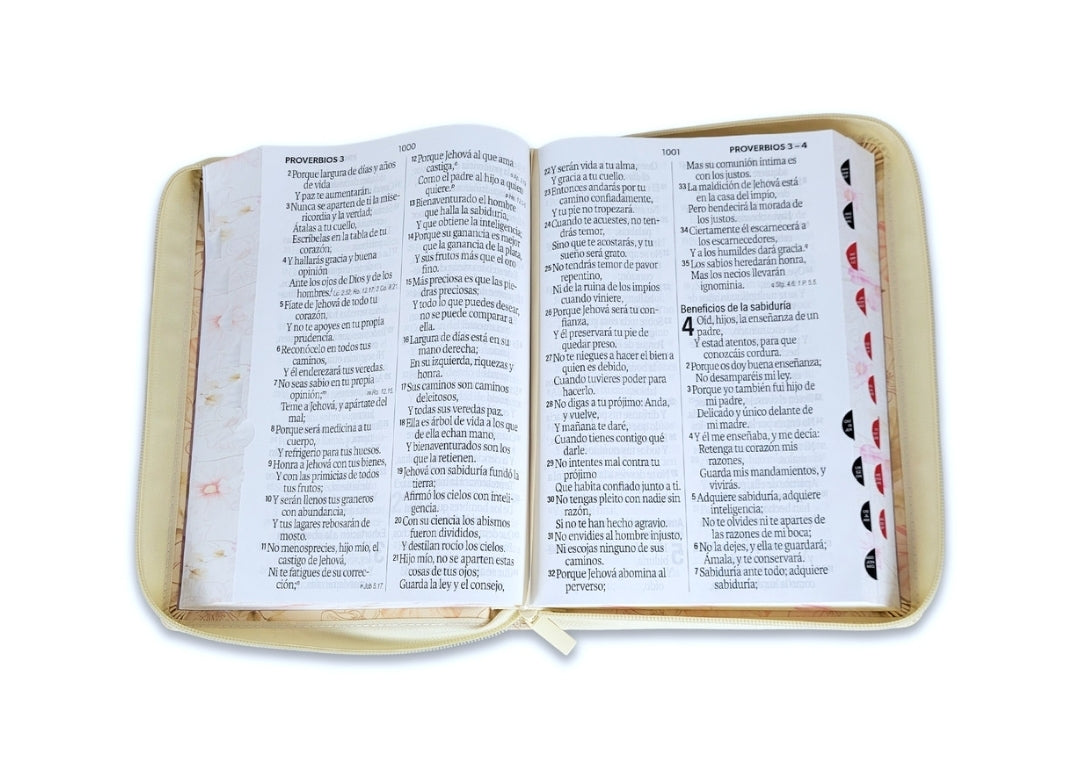 PROVERBIOS 3
1000
2 Porque largura de días y años
de vida
Y paz te aumentarán.
3 Nunca se aparten de ti la mise-
ricordia y la verdad;
Átalas a tu cuello,
Escríbelas en la tabla de tu
corazón;
4 Y hallarás gracia y buena
opinión
Ante los ojos de Dios y de los
hombres.
5 Fíate de Jehová de todo tu
corazón,
Y no te apoyes en tu propia
prudencia.
6 Reconócelo en todos tus
caminos,
Y él enderezará tus veredas.
7 No seas sabio en tu propia
opinión;
Teme a Jehová, y apártate del
mal;
8 Porque será medicina a tu
cuerpo,
Y refrigerio para tus huesos.
9 Honra a Jehová con tus bienes,
Y con las primicias de todos
tus frutos;
10 Y serán llenos tus graneros
con abundancia,
Y tus lagares rebosarán de
mosto.
11 No menosprecies, hijo mío, el
castigo de Jehová,
Ni te fatigues de su correc-
ción,
o Job 5.17
12 Porque Jehová al que ama
castiga,
Como el padre al hijo a quien
quiere.
13 Bienaventurado el hombre
que halla la sabiduría,
Y que obtiene la inteligencia;
14 Porque su ganancia es mejor
que la ganancia de la plata,
Y sus frutos más que el oro
fino.
15 Más preciosa es que las pie-
dras preciosas;
Y todo lo que puedes desear,
no se puede comparar a
ella.
16 Largura de días está en su
mano derecha;
En su izquierda, riquezas y
honra.
17 Sus caminos son caminos
deleitosos,
Y todas sus veredas paz.
18 Ella es árbol de vida a los que
de ella echan mano,
Y bienaventurados son los
que la retienen.
19 Jehová con sabiduría fundó la
tierra;
Afirmó los cielos con inteli-
gencia.
20 Con su ciencia los abismos
fueron divididos,
Y destilan rocío los cielos.
21 Hijo mío, no se aparten estas
cosas de tus ojos;
Guarda la ley y el consejo,
1001
PROVERBIOS 3 – 4
22 Y serán vida a tu alma,
Y gracia a tu cuello.
23 Entonces andarás por tu
camino confiadamente,
Y tu pie no tropezará.
24 Cuando te acuestes, no ten-
drás temor,
Sino que te acostarás, y tu
sueño será grato.
25 No tendrás temor de pavor
repentino,
Ni de la ruina de los impíos
cuando viniere,
26 Porque Jehová será tu con-
fianza,
Y él preservará tu pie de
quedar preso.
27 No te niegues a hacer el bien a
quien es debido,
Cuando tuvieres poder para
hacerlo.
28 No digas a tu prójimo: Anda,
y vuelve,
Y mañana te daré,
Cuando tienes contigo qué
darle.
29 No intentes mal contra tu
prójimo
Que habita confiado junto a ti.
30 No tengas pleito con nadie sin
razón,
Si no te han hecho agravio.
31 No envidies al hombre injusto,
Ni escojas ninguno de sus
caminos.
32 Porque Jehová abomina al
perverso;
Mas su comunión íntima es
con los justos.
33 La maldición de Jehová está
en la casa del impío,
Pero bendecirá la morada de
los justos.
34 Ciertamente él escarnecerá a
los escarnecedores,
Y a los humildes dará gracia.
35 Los sabios heredarán honra,
Mas los necios llevarán
ignominia.
q Stg. 4.6; 1 P. 5.5.
Beneficios de la sabiduría
4 Oíd, hijos, la enseñanza de un
padre,
Y estad atentos, para que
conozcáis cordura.
2 Porque os doy buena enseñanza;
No desamparéis mi ley.
3 Porque yo también fui hijo de
mi padre,
Delicado y único delante de
mi madre.
4 Y él me enseñaba, y me decía:
Retenga tu corazón mis
razones,
Guarda mis mandamientos, y
vivirás.
5 Adquiere sabiduría, adquiere
inteligencia;
No te olvides ni te apartes de
las razones de mi boca;
6 No la dejes, y ella te guardará;
Ámala, y te conservará.
7 Sabiduría ante todo; adquiere
sabiduría;